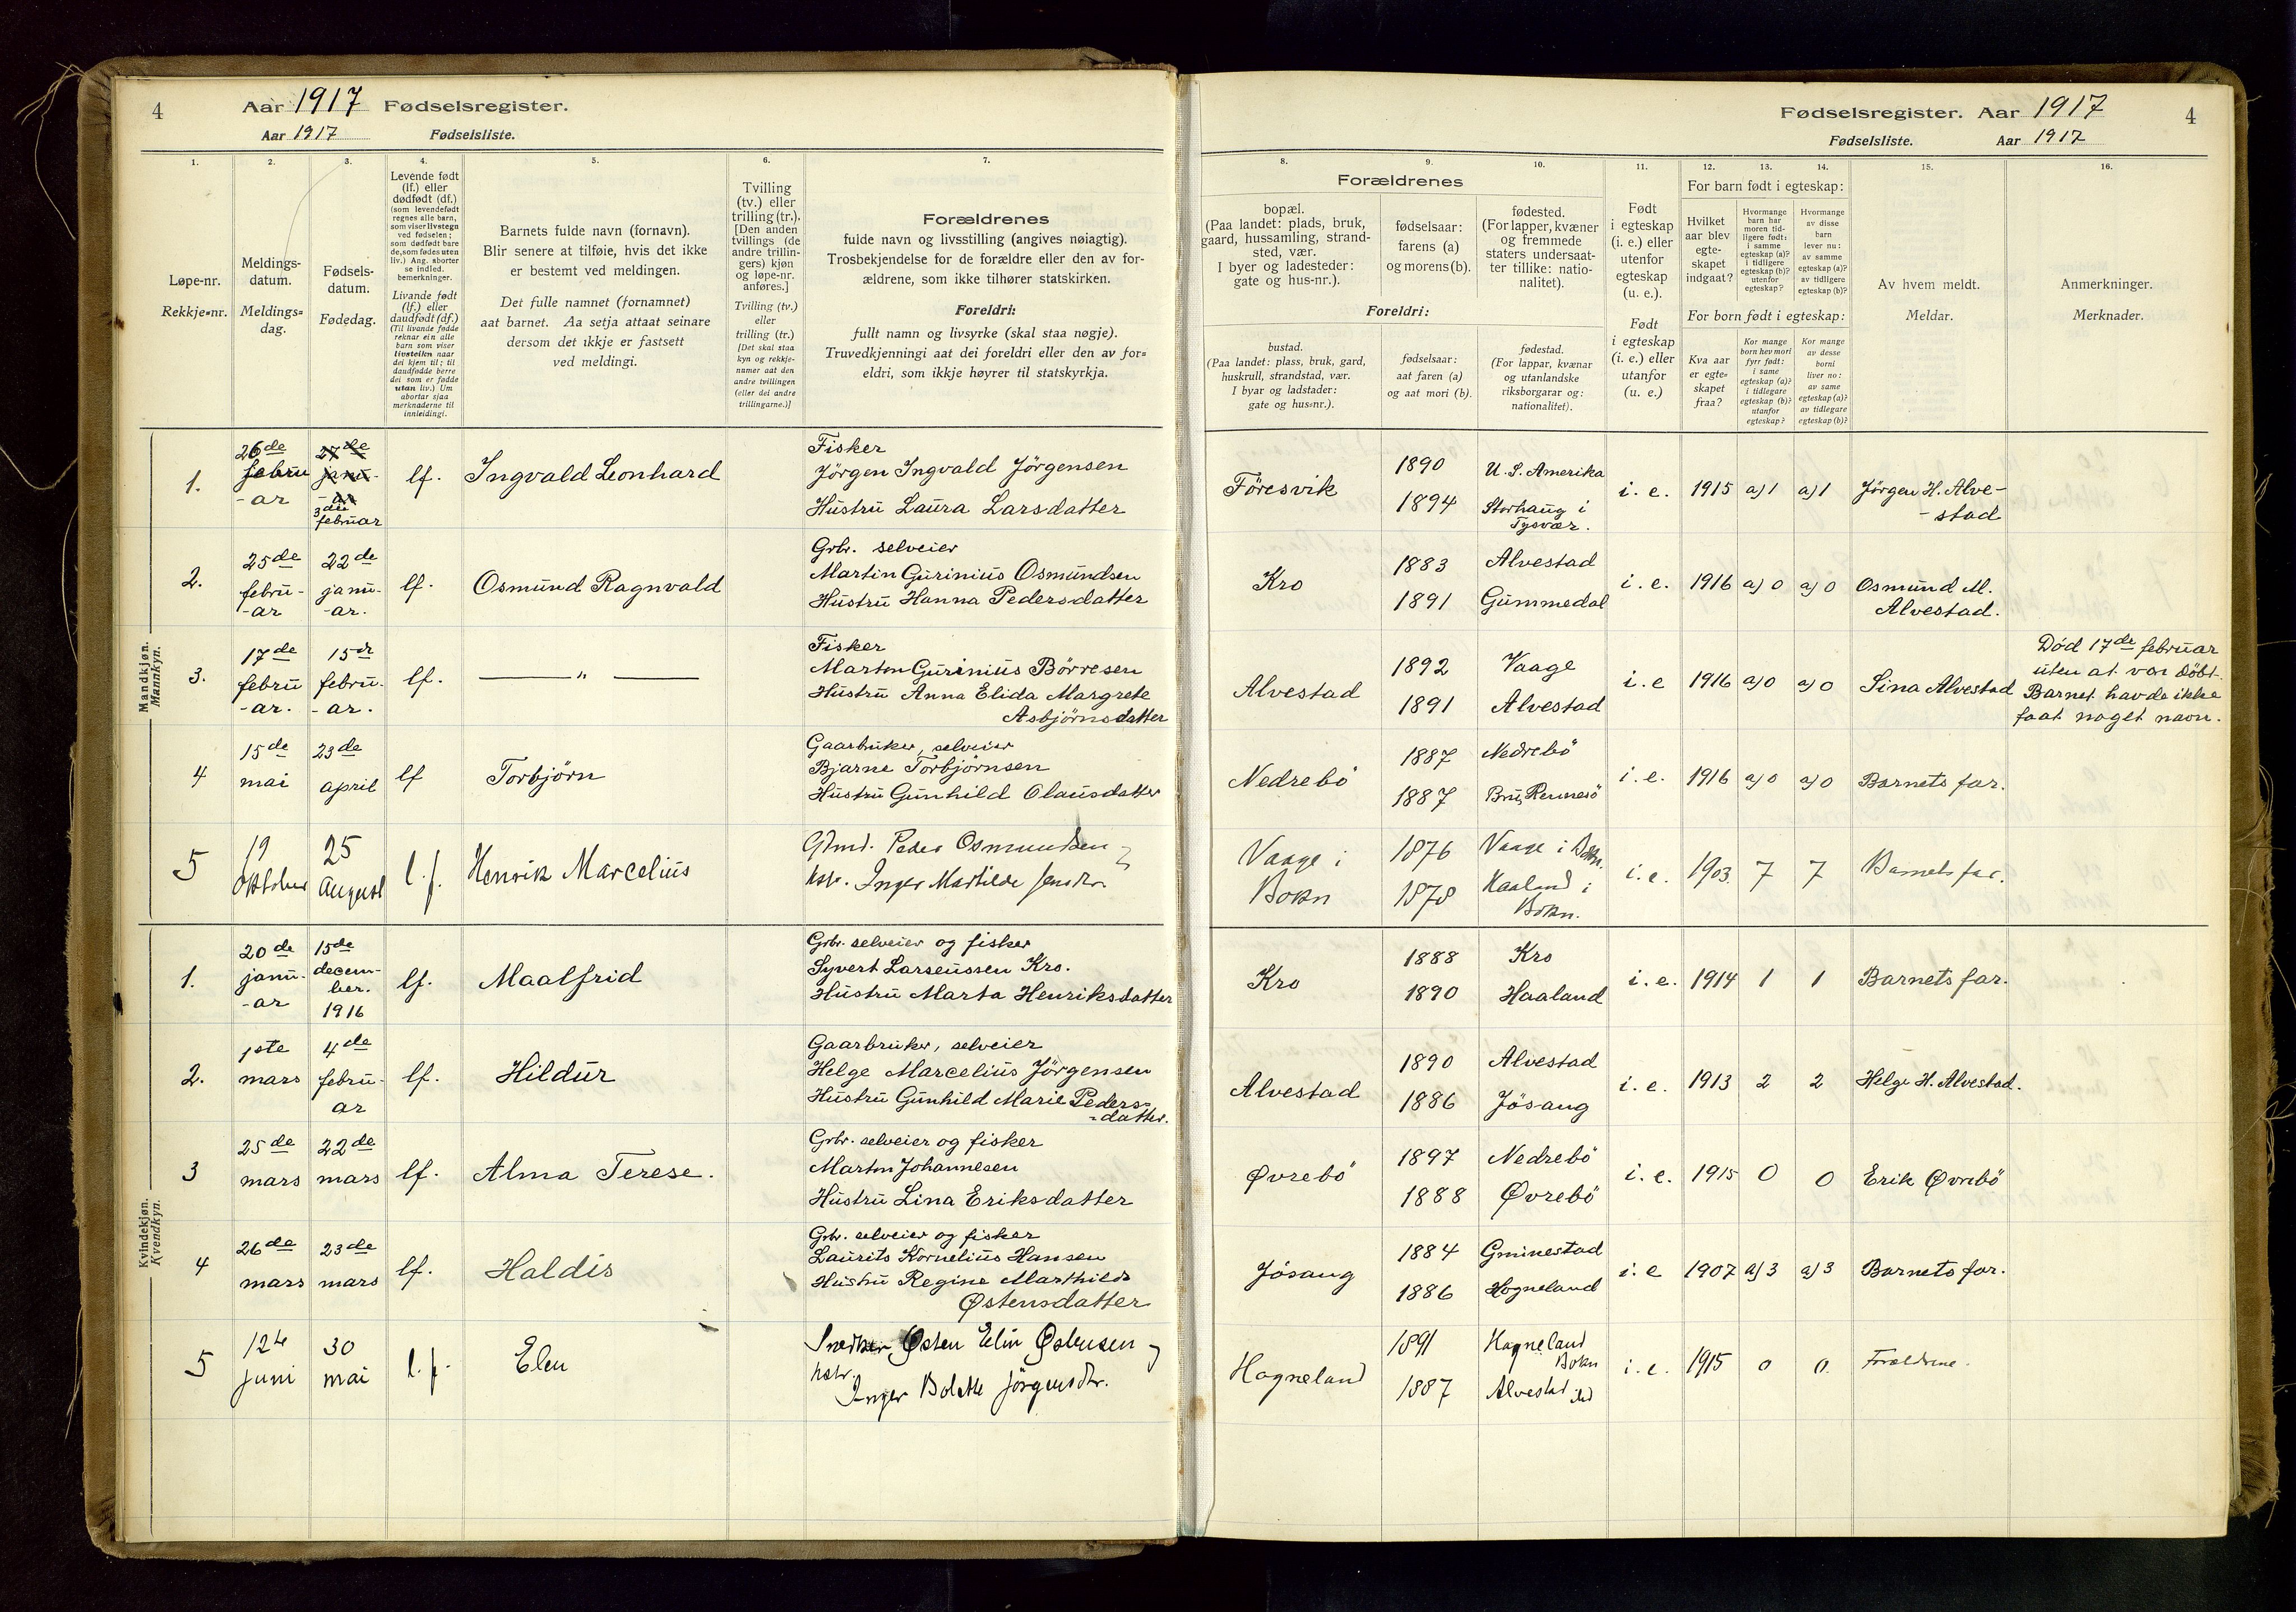 4 Aar 1917 Fødselsregister.
Aar 1917 Fødselsliste.
Fødselsregister. Aar 1917 4
Fødselsliste. Aar 1917
1. 2. 3. 4. 5. 6. 7.
Løpe-nr.
Rekkje-nr.
Meldings-
datum.
Meldings-
dag.
Fødsels-
datum.
Fødedag.
Levende født
(lf.) eller
dødfødt (df.)
(som levendefødt
regnes alle barn,
som viser livstegn
ved fødselen;
som dødfødt bare
de, som fødes uten
liv.) Ang. aborter
se indled.
bemerkninger.
Livande født
(lf.) eller
daudfødt (df.)
(Til livande fødde
reknar ein alle
barn som viser
livsteikn naar
dei kjem til; til
daudfødde berre
dei som er fødde
utan liv.) Um
abortar sjaa
merknaderne til
innleidingi.
Barnets fulde navn (fornavn).
Blir senere at tilføie, hvis det ikke
er bestemt ved meldingen.
Det fulle namnet (fornamnet)
aat barnet. Aa setja attaat seinare
dersom det ikkje er fastsett
ved meldingi.
Tvilling
(tv.) eller
trilling (tr.).
[Den anden
tvillings (de
andre trillin-
gers) kjøn
og løpe-nr.
anføres.]
Tvilling (tv.)
eller
trilling (tr.)
[Det skal staa
kyn og rekkje-
numer aat den
andre tvillingen
(eller dei andre
trillingarne.)]
Forældrenes
fulde navn og livsstilling (angives nøiagtig).
Trosbekjendelse for de forældre eller den av for-
ældrene, som ikke tilhører statskirken.
Foreldri:
fullt namn og livsyrke (skal staa nøgje).
Truvedkjenningi aat dei foreldri eller den av for-
eldri, som ikkje høyrer til statskyrkja.
8. 9. 10. 11. 12. 13. 14. 15. 16.
Forældrenes
bopæl.
(Paa landet: plads, bruk,
gaard, hussamling, strand-
sted, vær.
I byer og ladesteder:
gate og hus-nr.).
fødselsaar:
farens (a)
og morens (b).
fødested.
(For lapper, kvæner
og fremmede
staters undersaat-
ter tillike: natio-
nalitet).
Foreldri:
bustad.
(Paa landet: plass, bruk, gard,
huskrull, strandstad, vær.
I byar og ladstader:
gate og hus-nr.).
fødselsaar:
aat faren (a)
og aat mori (b).
fødestad.
(For lappar, kvænar
og utanlandske
riksborgarar og:
nationalitet).
Født
i egteskap
(i. e.) eller
utenfor
egteskap
(u. e.).
Født
i egteskap
(i. e.) eller
utanfor
(u. e.)
For barn født i egteskap:
Hvilket
aar blev
egte-
skapet
indgaat?
Hvormange
barn har
moren tid-
ligere født:
i samme
egteskap (a)?
i tidligere
egteskap (b)?
utenfor
egteskap?
Hvormange
av disse
barn
lever nu:
av samme
egteskap (a)?
av tidligere
egteskap (b)?
For born født i egteskap:
Kva aar
er egte-
skapet
fraa?
Kor mange
born hev mori
fyrr født:
i same
egteskap (a)?
i tidlegare
egteskap (b)?
utanfor
egteskap?
Kor mange
av desse
borni
liver no:
av same
egteskap (a)?
av tidlegare
egteskap (b)?
Av hvem meldt.
Meldar.
Anmerkninger.
Merknader.
Mandkjøn.
Mannkyn.
1. 26de febru-ar 27de janu-ar 3die februar lf. Ingvald Leonhard
Fisker
Jörgen Ingvald Jörgensen
Hustru Laura Larsdatter
Föresvik 1890 U. S. Amerika i. e. 1915 a) 1 a) 1 Jörgen H. Alve-
1894 Storhaug i Tysvær. -stad
2. 25de febru-ar 22de janu-ar. lf. Osmund Ragnvald
Grbr. selveier
Martin Gurinius Osmundsen
Hustru Hanna Pedersdatter
Kro 1883 Alvestad i. e. 1916 a) 0 a) 0 Osmund M.
1891 Gummedal Alvestad.
3. 17de febru-ar. 15de febru-ar. lf. — " —
Fisker
Marton Gurinius Börresen
Hustru Anna Elida Margrete
Asbjörnsdatter
Alvestad 1892 Vaage i. e 1916 a) 0 a) 0 Sina Alvestad
1891 Alvestad
Död 17de februar
uten at var döbt.
Barnet havde ikke
faat noget navn.
4 15de mai 23de april lf Torbjörn
Gaarbruker, selveier
Bjarne Torbjörnsen
Hustru Gunhild Olausdatter
Nedrebö 1887 Nedrebö i. e. 1916 a) 0 a) 0 Barnets far.
1887 Bru, Rennesö
5 19 Oktober 25 August l. f. Henrik Marcelius
Gdmd. Peder Osmundsen
hstr. Inger Martilde Jensdtr.
Vaage i Bokn 1876 Vaage i Bokn. i. e. 1903 7 7 Barnets far.
1878 Haaland i Bokn.
Kvindekjøn.
Kvendkyn.
1. 20de janu-ar 15de decem-ber. 1916 lf. Maalfrid
Grbr. selveier og fisker
Syvert Larseussen Kro.
Hustru Marta Henriksdatter
Kro 1888 Kro i. e. 1914 1 1 Barnets far.
1890 Haaland
2. 1ste mars 4de febru-ar lf. Hildur
Gaarbruker, selveier
Helge Marcelius Jörgensen
Hustru Gunhild Marie Peders-
-datter.
Alvestad 1890 Alvestad i. e. 1913 2 2 Helge H. Alvestad.
1886 Jösang
3 25de mars 22de mars lf. Alma Terese.
Grbr. selveier og fisker
Marton Johannesen
Hustru Lina Eriksdatter
Øvrebö 1897 Nedrebö i. e. 1915 0 0 Erik Øvrebö
1888 Øvrebö
4 26de mars 23de mars lf. Haldis
Grbr. selveier og fisker
Laurits Kornelius Hansen
Hustru Regine Marthilde
Østensdatter
Jösang 1884 Grinestad i. e 1907 a) 3 a) 3 Barnets far.
1886 Hogneland
5 12te juni 30 mai l. f. Elen
Snedker Østen Elin Østensen
hstr.
Inger Bolette Jörgensdtr.
Hogneland 1891 Hogneland Bokn i. e. 1915 0 0. Forældrene.
1887 Alvestad